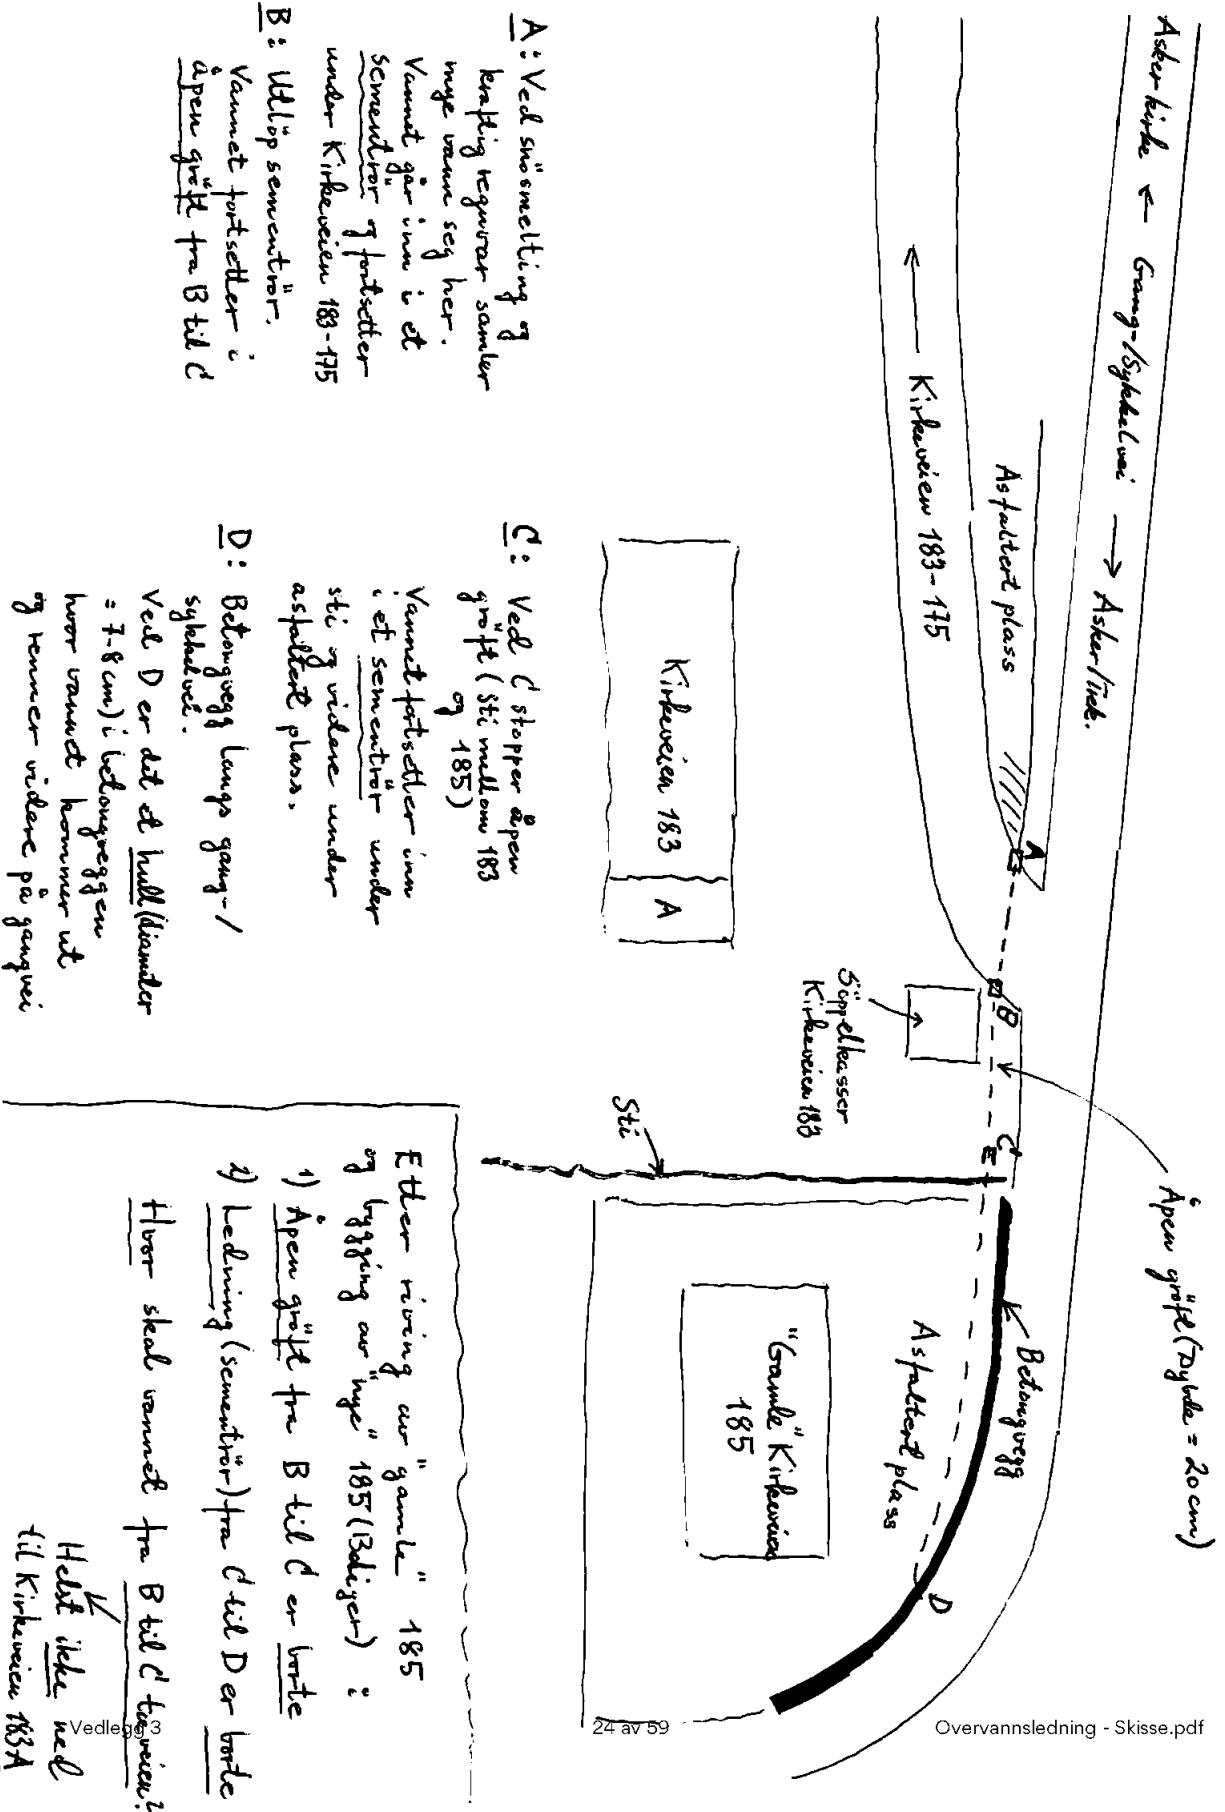 Asker kirke ← Gang-/Sykkelvei → Asker/Trek.
Åpen gröft (Dybde = 20 cm)
Asfaltert plass
← Kirkeveien 183-175
A
B
C
Betongvegg
D
Asfaltert plass
Söppelkasser
Kirkeveien 183
Sti
Kirkeveien 183
A
"Gamle" Kirkeveien
185
A: Ved snösmelting og
kraftig regnvær samler
mye vann seg her.
Vannet går inn i et
sementrör og fortsetter
under Kirkeveien 183-175
B: Utlöp sementrör.
Vannet fortsetter i
åpen gröft fra B til C
C: Ved C stopper åpen
gröft (Sti mellom 183
og 185)
Vannet fortsetter inn
i et sementrör under
sti og videre under
asfaltert plass.
D: Betongvegg langs gang-/
sykkelvei.
Ved D er det et hull (diameter
= 7-8 cm) i betongveggen
hvor vannet kommer ut
og renner videre på gangvei
Etter riving av "gamle" 185
og bygging av "nye" 185 (Boliger) :
1) Åpen gröft fra B til C er borte
2) Ledning (sementrör) fra C til D er borte
Hvor skal vannet fra B til C ta veien?
Helst ikke ned
til Kirkeveien 183A
Vedlegg 3
24 av 59
Overvannsledning - Skisse.pdf